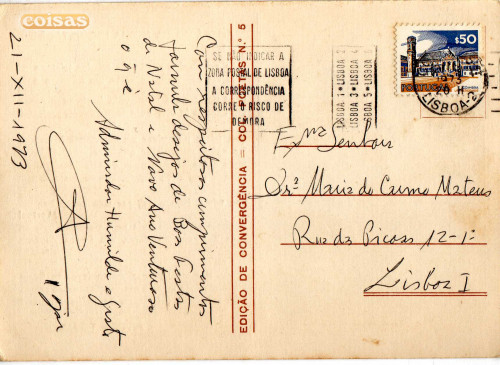 coisas
21-XII-1973
Com respeitosos cumprimentos
formulo desejos de Boas Festas
de Natal e Novo Ano Venturoso
o q. é
Admirador Humilde e Grato
EDIÇÃO DE CONVERGÊNCIA = COLE POSTES N.º 5
SE NÃO INDICAR A
ZONA POSTAL DE LISBOA
A CORRESPONDÊNCIA
CORRE O RISCO DE
DEMORA
LISBOA 1 • LISBOA 2
LISBOA 3 • LISBOA 4
LISBOA 5 • LISBOA
$50
1973
20 H
LISBOA-2
Exma Senhora
Dr.ª Maria do Carmo Mateus
Rua das Picoas 12-1º
Lisboa 1